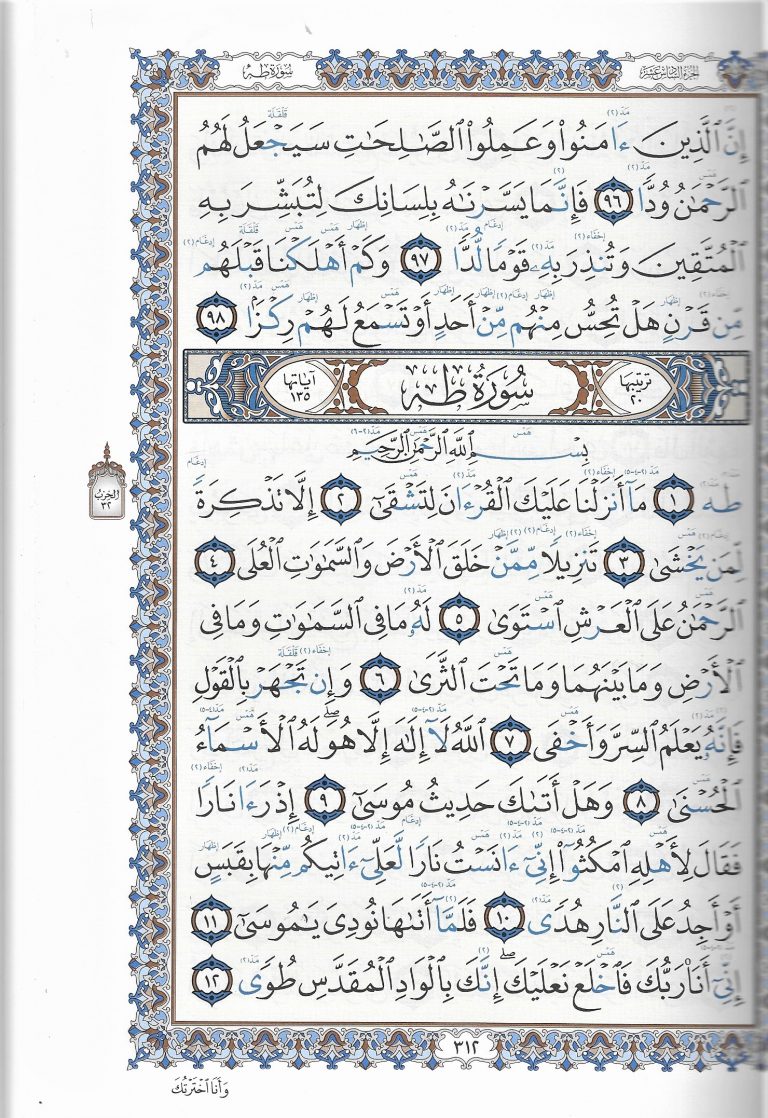 سورة طه الجزء السادس عشر
إِنَّ ٱلَّذِينَ ءَامَنُوا۟ وَعَمِلُوا۟ ٱلصَّٰلِحَٰتِ سَيَجْعَلُ لَهُمُ
ٱلرَّحْمَٰنُ وُدًّا ٩٦ فَإِنَّمَا يَسَّرْنَٰهُ بِلِسَانِكَ لِتُبَشِّرَ بِهِ
ٱلْمُتَّقِينَ وَتُنذِرَ بِهِۦ قَوْمًا لُّدًّا ٩٧ وَكَمْ أَهْلَكْنَا قَبْلَهُم
مِّن قَرْنٍ هَلْ تُحِسُّ مِنْهُم مِّنْ أَحَدٍ أَوْ تَسْمَعُ لَهُمْ رِكْزًۢا ٩٨
ترتيبها ٢٠ سُورَةُ طه آياتها ١٣٥
بِسْمِ ٱللَّهِ ٱلرَّحْمَٰنِ ٱلرَّحِيمِ
طه ١ مَآ أَنزَلْنَا عَلَيْكَ ٱلْقُرْءَانَ لِتَشْقَىٰٓ ٢ إِلَّا تَذْكِرَةً
لِّمَن يَخْشَىٰ ٣ تَنزِيلًا مِّمَّنْ خَلَقَ ٱلْأَرْضَ وَٱلسَّمَٰوَٰتِ ٱلْعُلَى ٤
ٱلرَّحْمَٰنُ عَلَى ٱلْعَرْشِ ٱسْتَوَىٰ ٥ لَهُۥ مَا فِى ٱلسَّمَٰوَٰتِ وَمَا فِى
ٱلْأَرْضِ وَمَا بَيْنَهُمَا وَمَا تَحْتَ ٱلثَّرَىٰ ٦ وَإِن تَجْهَرْ بِٱلْقَوْلِ
فَإِنَّهُۥ يَعْلَمُ ٱلسِّرَّ وَأَخْفَى ٧ ٱللَّهُ لَآ إِلَٰهَ إِلَّا هُوَ ۖ لَهُ ٱلْأَسْمَآءُ
ٱلْحُسْنَىٰ ٨ وَهَلْ أَتَىٰكَ حَدِيثُ مُوسَىٰٓ ٩ إِذْ رَءَا نَارًا
فَقَالَ لِأَهْلِهِ ٱمْكُثُوٓا۟ إِنِّىٓ ءَانَسْتُ نَارًا لَّعَلِّىٓ ءَاتِيكُم مِّنْهَا بِقَبَسٍ
أَوْ أَجِدُ عَلَى ٱلنَّارِ هُدًى ١٠ فَلَمَّآ أَتَىٰهَا نُودِىَ يَٰمُوسَىٰٓ ١١
إِنِّىٓ أَنَا۠ رَبُّكَ فَٱخْلَعْ نَعْلَيْكَ ۖ إِنَّكَ بِٱلْوَادِ ٱلْمُقَدَّسِ طُوًى ١٢
الحزب ٣٢
٣١٢
وَأَنَا ٱخْتَرْتُكَ